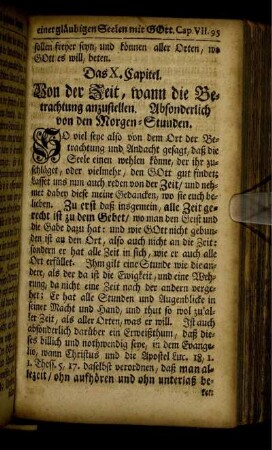 einer gläubigen Seelen mit GOtt. Cap. VII. 95
sollen freyer seyn, und können aller Orten, wo
GOtt es will, beten.
Das X. Capitel.
Von der Zeit, wann die Be-
trachtung anzustellen. Absonderlich
von den Morgen-Stunden.
SO viel seye also von dem Ort der Be-
trachtung und Andacht gesagt, daß die
Seele einen wehlen könne, der ihr zu-
schläget, oder vielmehr, den GOtt gut findet;
lasset uns nun auch reden von der Zeit/ und neh-
met dabey diese meine Gedancken, wo sie euch be-
lieben. Zu erst daß insgemein, alle Zeit ge-
recht ist zu dem Gebet/ wo man den Geist und
die Gabe dazu hat: und wie GOtt nicht gebun-
den ist an den Ort, also auch nicht an die Zeit:
sondern er hat alle Zeit in sich, wie er auch alle
Ort erfüllet. Ihm gilt eine Stunde wie die an-
dere, als der da ist die Ewigkeit, und eine Weh-
rung, da nicht eine Zeit nach der andern verge-
het: Er hat alle Stunden und Augenblicke in
seiner Macht und Hand, und thut so wol zu al-
ler Zeit, als aller Orten, was er will. Ist auch
absonderlich darüber ein Erweißthum, daß die-
ses billich und nothwendig seye, in dem Evange-
lio, wann Christus und die Apostel Luc. 18, 1.
1. Thess. 5, 17. daselbst verordnen, daß man al-
lezeit/ ohn aufhören und ohn unterlaß be-
ten